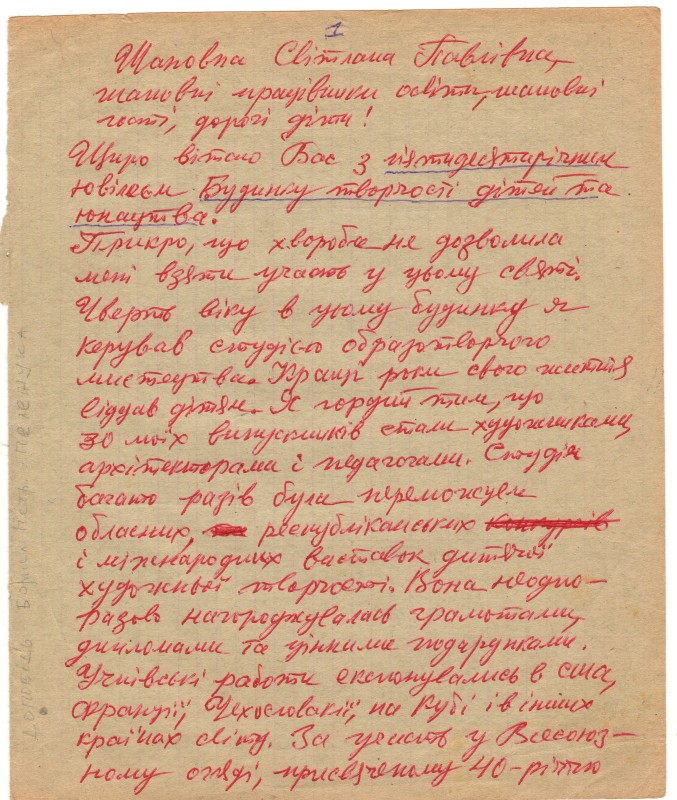 1
Шановна Світлана Павлівна,
шановні працівники освіти, шановні
гості, дорогі діти!
Щиро вітаю Вас з п'ятидесятирічним
ювілеєм Будинку творчості дітей та
юнацтва.
Прикро, що хвороба не дозволила
мені взяти участь у цьому святі.
Чверть віку в цьому будинку я
керував студією образотворчого
мистецтва. Кращі роки свого життя
віддав дітям. Я гордий тим, що
30 моїх випускників стали художниками,
архітекторами і педагогами. Студія
багато разів була переможцем
обласних, республіканських конкурсів
і міжнародних виставок дитячої
художньої творчості. Вона неодно-
разово нагороджувалась грамотами,
дипломами та цінними подарунками.
Учнівські роботи експонувались в США,
Франції, Чехословакії, на Кубі і в інших
країнах світу. За участь у Всесоюз-
ному огляді, присвяченому 40-річчю
Доповідь Бориса